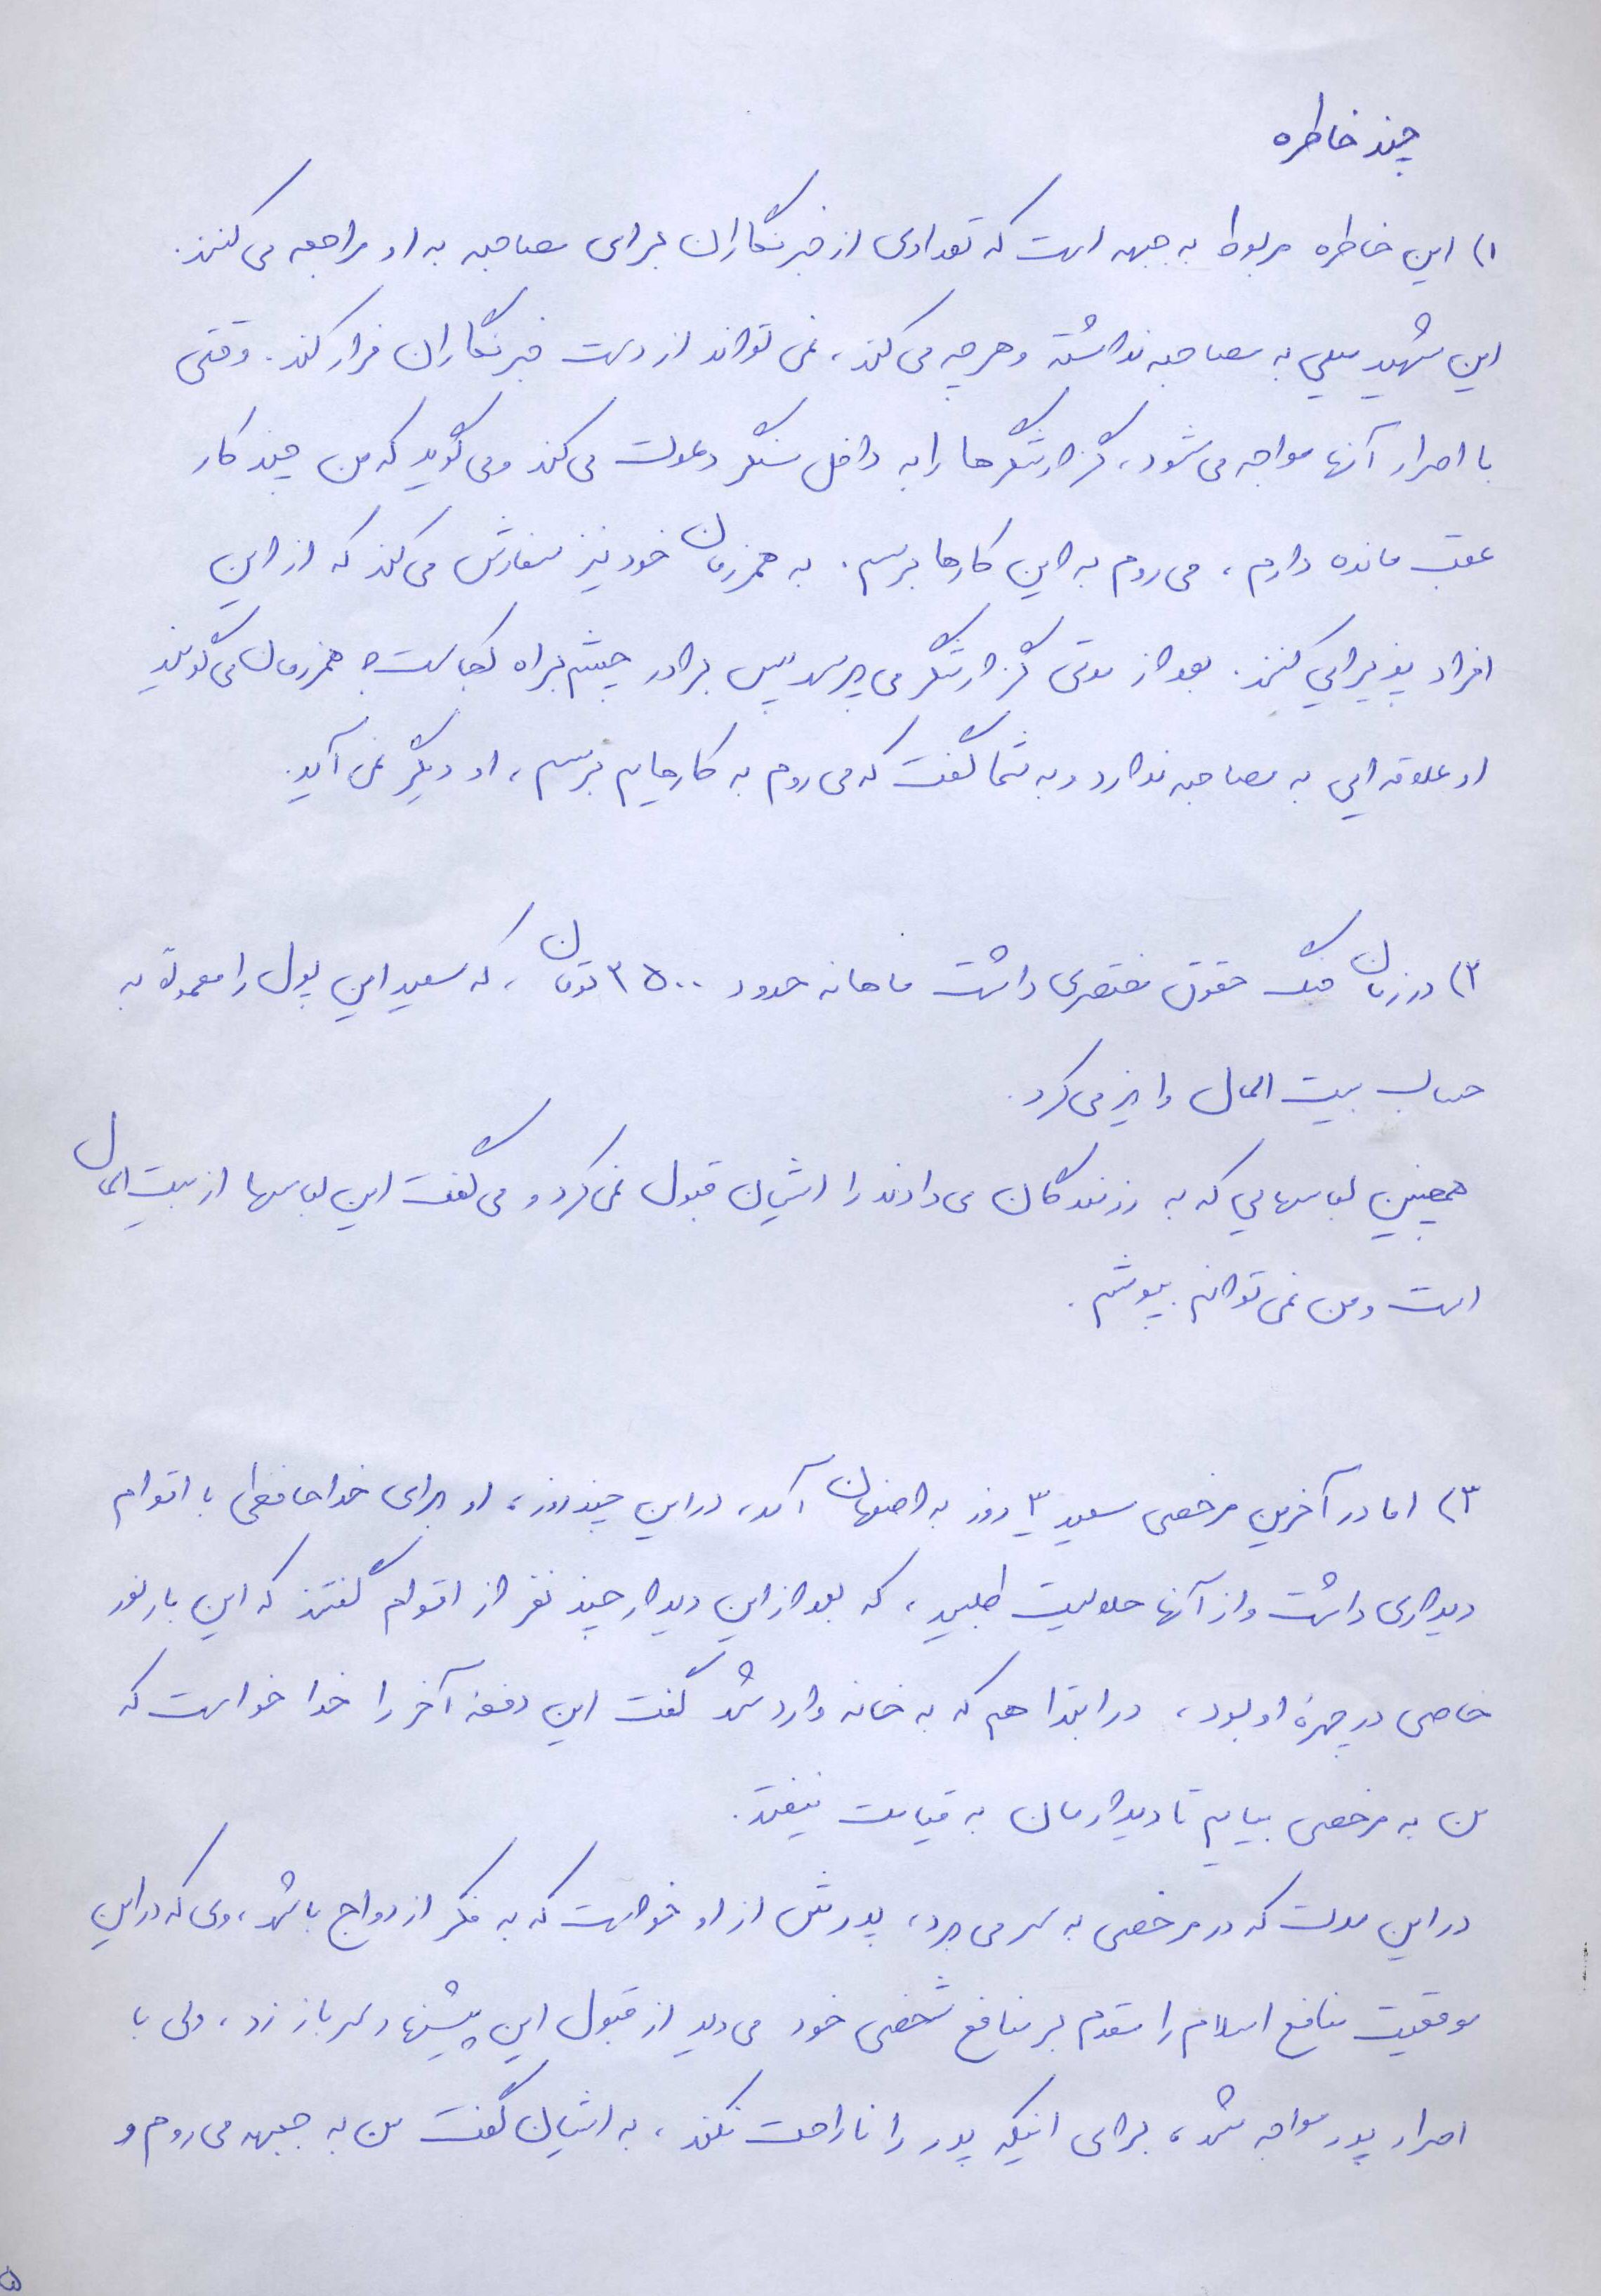 چند خاطره
۱) این خاطره مربوط به جبهه است که تعدادی از خبرنگاران برای مصاحبه به او مراجعه می کنند.
این شهید میلی به مصاحبه نداشته و هرچه می کند، نمی تواند از دست خبرنگاران فرار کند. وقتی
با اصرار آنها مواجه می شود، گزارشگرها را به داخل سنگر دعوت می کند و می گوید که من چند کار
عقب مانده دارم، می روم به این کارها برسم. به همرزمان خود نیز سفارش می کند که از این
افراد پذیرایی کنند. بعد از مدتی گزارشگر می پرسد پس برادر چشم براه کجاست؟ همرزمان می گویند
او علاقه ایی به مصاحبه ندارد و به شما گفت که می روم به کارهایم برسم، او دیگر نمی آید.
۲) در زمان جنگ حقوق مختصری داشت ماهانه حدود ۲۵۰۰ تومان، که سعید این پول را معمولاً به
حساب بیت المال واریز می کرد.
همچنین لباسهایی که به رزمندگان می دادند را ایشان قبول نمی کرد و می گفت این لباسها از بیت المال
است و من نمی توانم بپوشم.
۳) اما در آخرین مرخصی سعید ۳ روز به اصفهان آمد، در این چند روز، او برای خداحافظی با اقوام
دیداری داشت و از آنها حلالیت طلبید، که بعد از این دیدار چند نفر از اقوام گفتند که این بار نور
خاصی در چهرهٔ او بود، در ابتدا هم که به خانه وارد شد گفت این دفعهٔ آخر را خدا خواست که
من به مرخصی بیایم تا دیدارمان به قیامت نیفتد.
در این مدت که در مرخصی به سر می برد، پدرش از او خواست که به فکر ازدواج باشد، وی که در این
موقعیت منافع اسلام را مقدم بر منافع شخصی خود می دید از قبول این پیشنهاد سر باز زد، ولی با
اصرار پدر مواجه شد، برای اینکه پدر را ناراحت نکند، به ایشان گفت من به جبهه می روم و